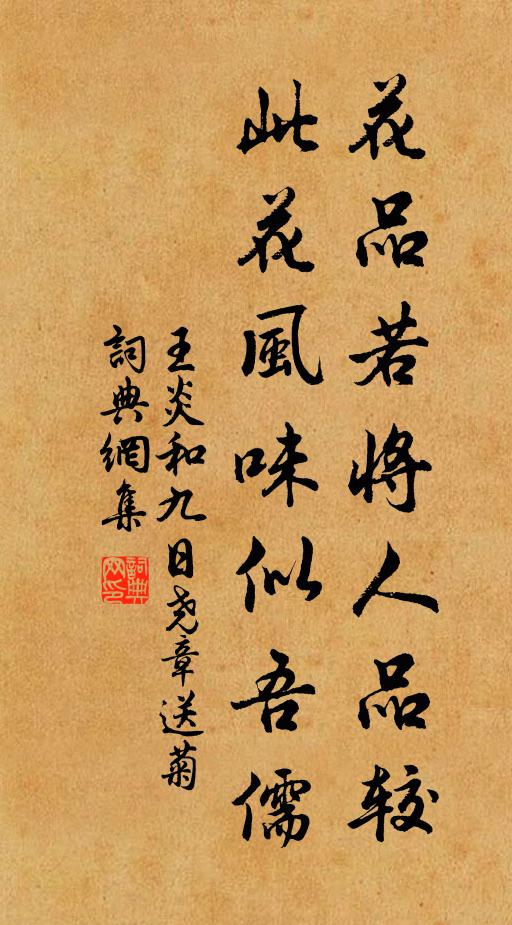 花品若将人品较
此花風味似吾儒
王炎和九日尧章送菊
詞典網集
詞典网印